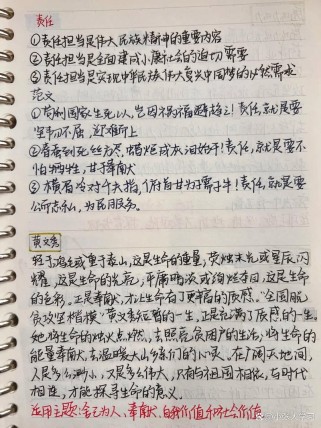 责任
①责任担当是伟大民族精神的重要内容
②责任担当是全面建成小康社会的迫切需要
③责任担当是实现中华民族伟大复兴中国梦的必然需求
范文
①苟利国家生死以,岂因祸福避趋之!责任,就是要
坚韧不屈,迎难而上
②春蚕到死丝方尽,蜡炬成灰泪始干!责任,就是要不
怕牺牲,甘于奉献
③横眉冷对千夫指,俯首甘为孺子牛!责任,就是要
公而忘私,为民服务。
黄文秀
轻于鸿毛或重于泰山,这是生命的重量,荧烛末光或星辰闪
耀,这是生命的光亮;平庸暗淡或绚烂夺目,这是生命
的色彩,正是奉献,才让生命有了更高的质感。"全国脱
贫攻坚楷模"黄文秀短暂的一生,正是充满了质感的一生。
她将生命的烛火点燃,去照亮贫困户的生活;将生命的
能量奉献,去温暖大山乡亲们的心灵。在广阔天地间,
人是多么渺小,又是多么伟大,只有与祖国相依,与时代
相连,才能探寻生命的意义。
运用主题:舍己为人、奉献、自我价值和社会价值